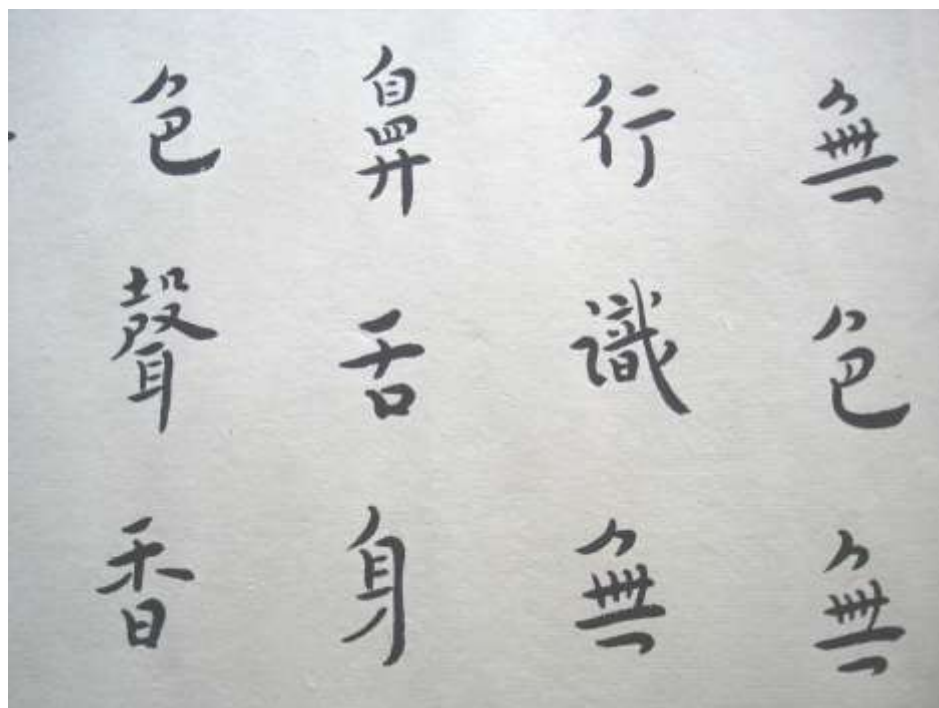 無色無
行識無
鼻舌身
色聲香